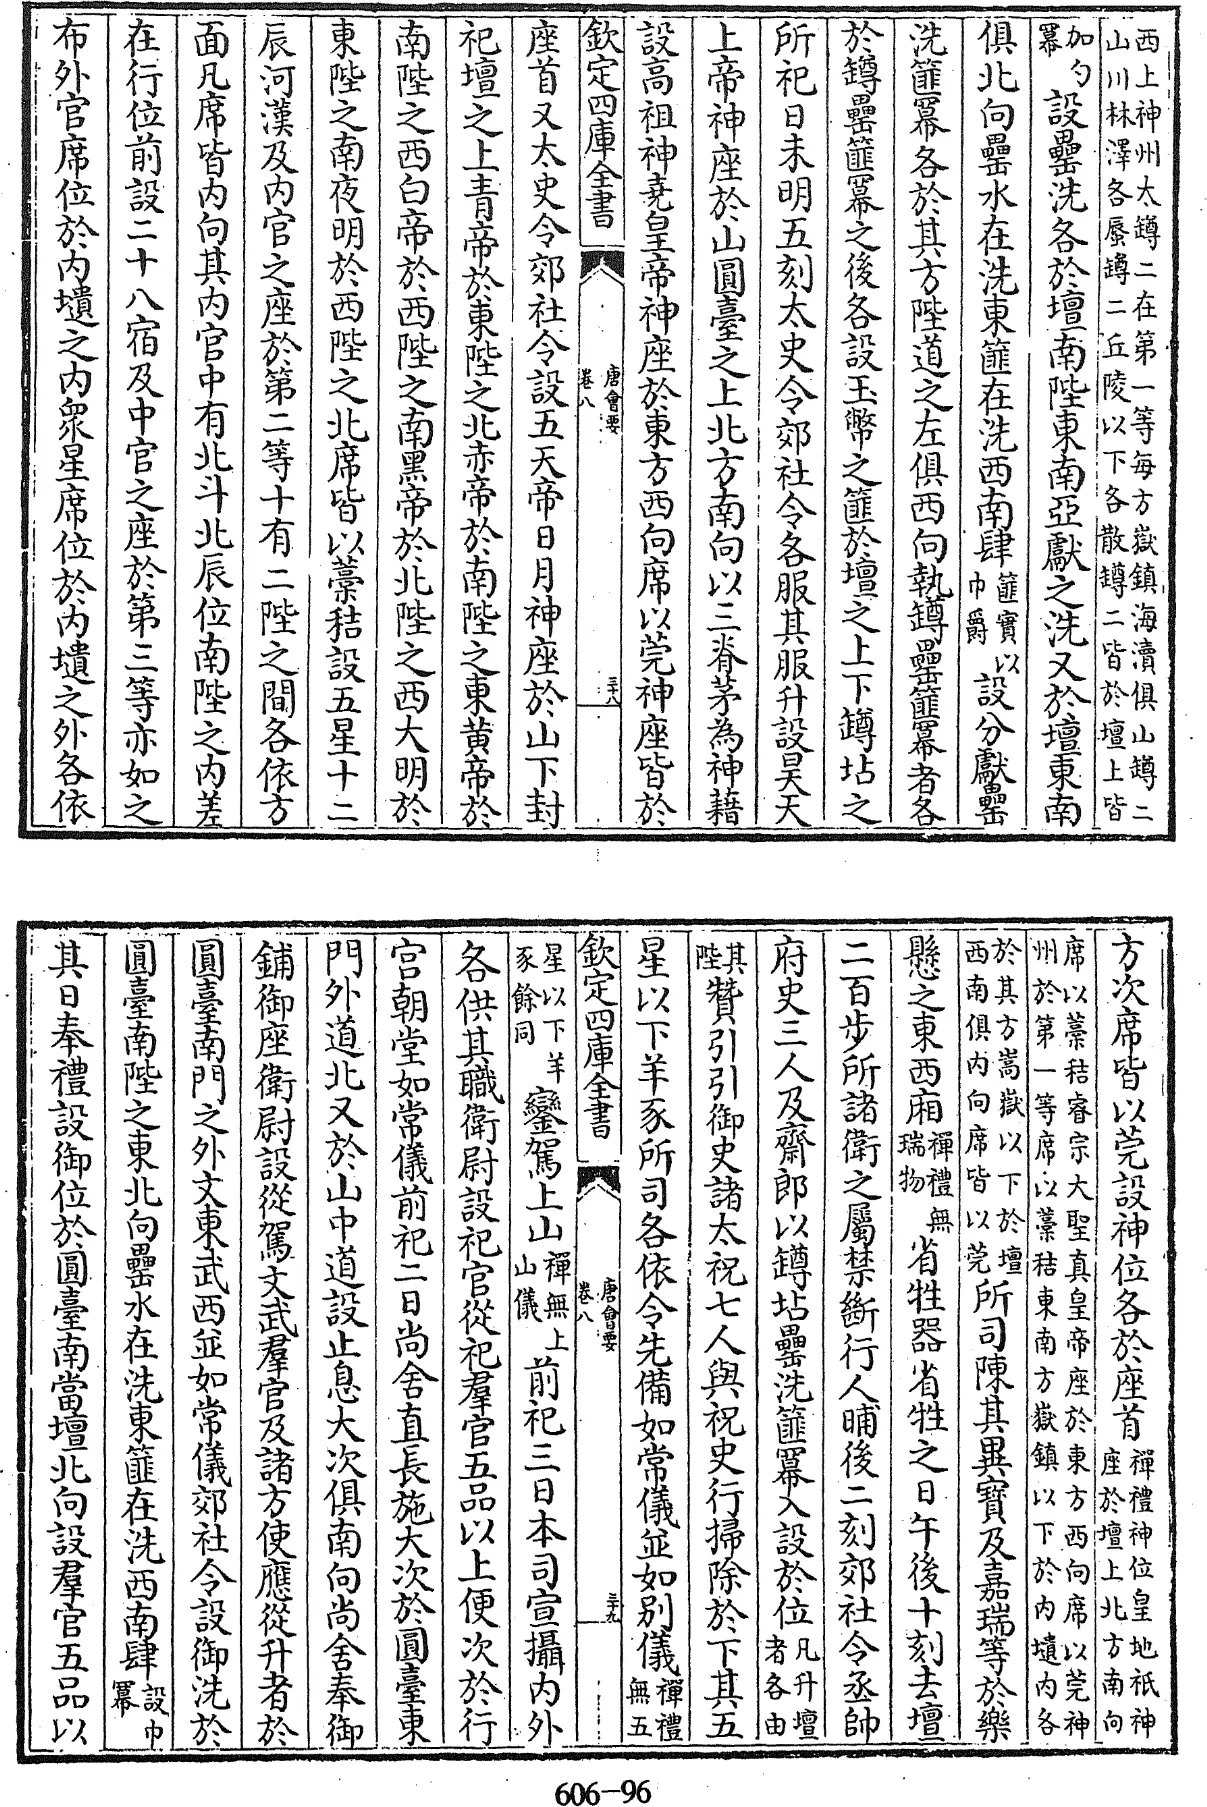 西上神州太罇二在第一等每方嶽鎮海瀆俱山罇二
山川林澤各蜃罇二丘陵以下各散罇二皆於壇上皆
加勺
冪
設罍洗各於壇南陛東南亞獻之洗又於壇東南
俱北向罍水在洗東篚在洗西南肆
篚實以
巾爵
設分獻罍
洗篚冪各於其方陛道之左俱西向執罇罍篚冪者各
於罇罍篚冪之後各設玉幣之篚於壇之上下罇坫之
所祀日未明五刻太史令郊社令各服其服升設昊天
上帝神座於山圓臺之上北方南向以三脊茅為神藉
設高祖神堯皇帝神座於東方西向席以莞神座皆於
欽定四庫全書
唐會要
卷八
三十八
座首又太史令郊社令設五天帝日月神座於山下封
祀壇之上青帝於東陛之北赤帝於南陛之東黄帝於
南陛之西白帝於西陛之南黑帝於北陛之西大明於
東陛之南夜明於西陛之北席皆以藁秸設五星十二
辰河漢及内官之座於第二等十有二陛之間各依方
面凡席皆内向其内官中有北斗北辰位南陛之内差
在行位前設二十八宿及中官之座於第三等亦如之
布外官席位於内壝之内衆星席位於内壝之外各依
方次席皆以莞設神位各於座首
禪禮神位皇地祇神
座於壇上北方南向
席以藁秸睿宗大聖真皇帝座於東方西向席以莞神
州於第一等席以藁秸東南方嶽鎮以下於内壝内各
於其方嵩嶽以下於壇
西南俱内向席皆以莞
所司陳其異寶及嘉瑞等於樂
懸之東西廂
禪禮無
瑞物
省牲器省牲之日午後十刻去壇
二百步所諸衛之屬禁斷行人晡後二刻郊社令丞帥
府史三人及齋郎以罇坫罍洗篚冪入設於位
凡升壇
者各由
其
陛
贊引引御史諸太祝七人與祝史行掃除於下其五
星以下羊豕所司各依令先備如常儀並如别儀
禪禮
無五
欽定四庫全書
唐會要
卷八
三十九
星以下羊
豕餘同
鑾駕上山
禪無上
山儀
前祀三日本司宣攝内外
各供其職衛尉設祀官從祀羣官五品以上便次於行
宫朝堂如常儀前祀二日尚舍直長施大次於圓臺東
門外道北又於山中道設止息大次俱南向尚舍奉御
鋪御座衛尉設從駕文武羣官及諸方使應從升者於
圓臺南門之外文東武西並如常儀郊社令設御洗於
圓臺南陛之東北向罍水在洗東篚在洗西南肆
設巾
冪
其日奉禮設御位於圓臺南當壇北向設羣官五品以
606-96